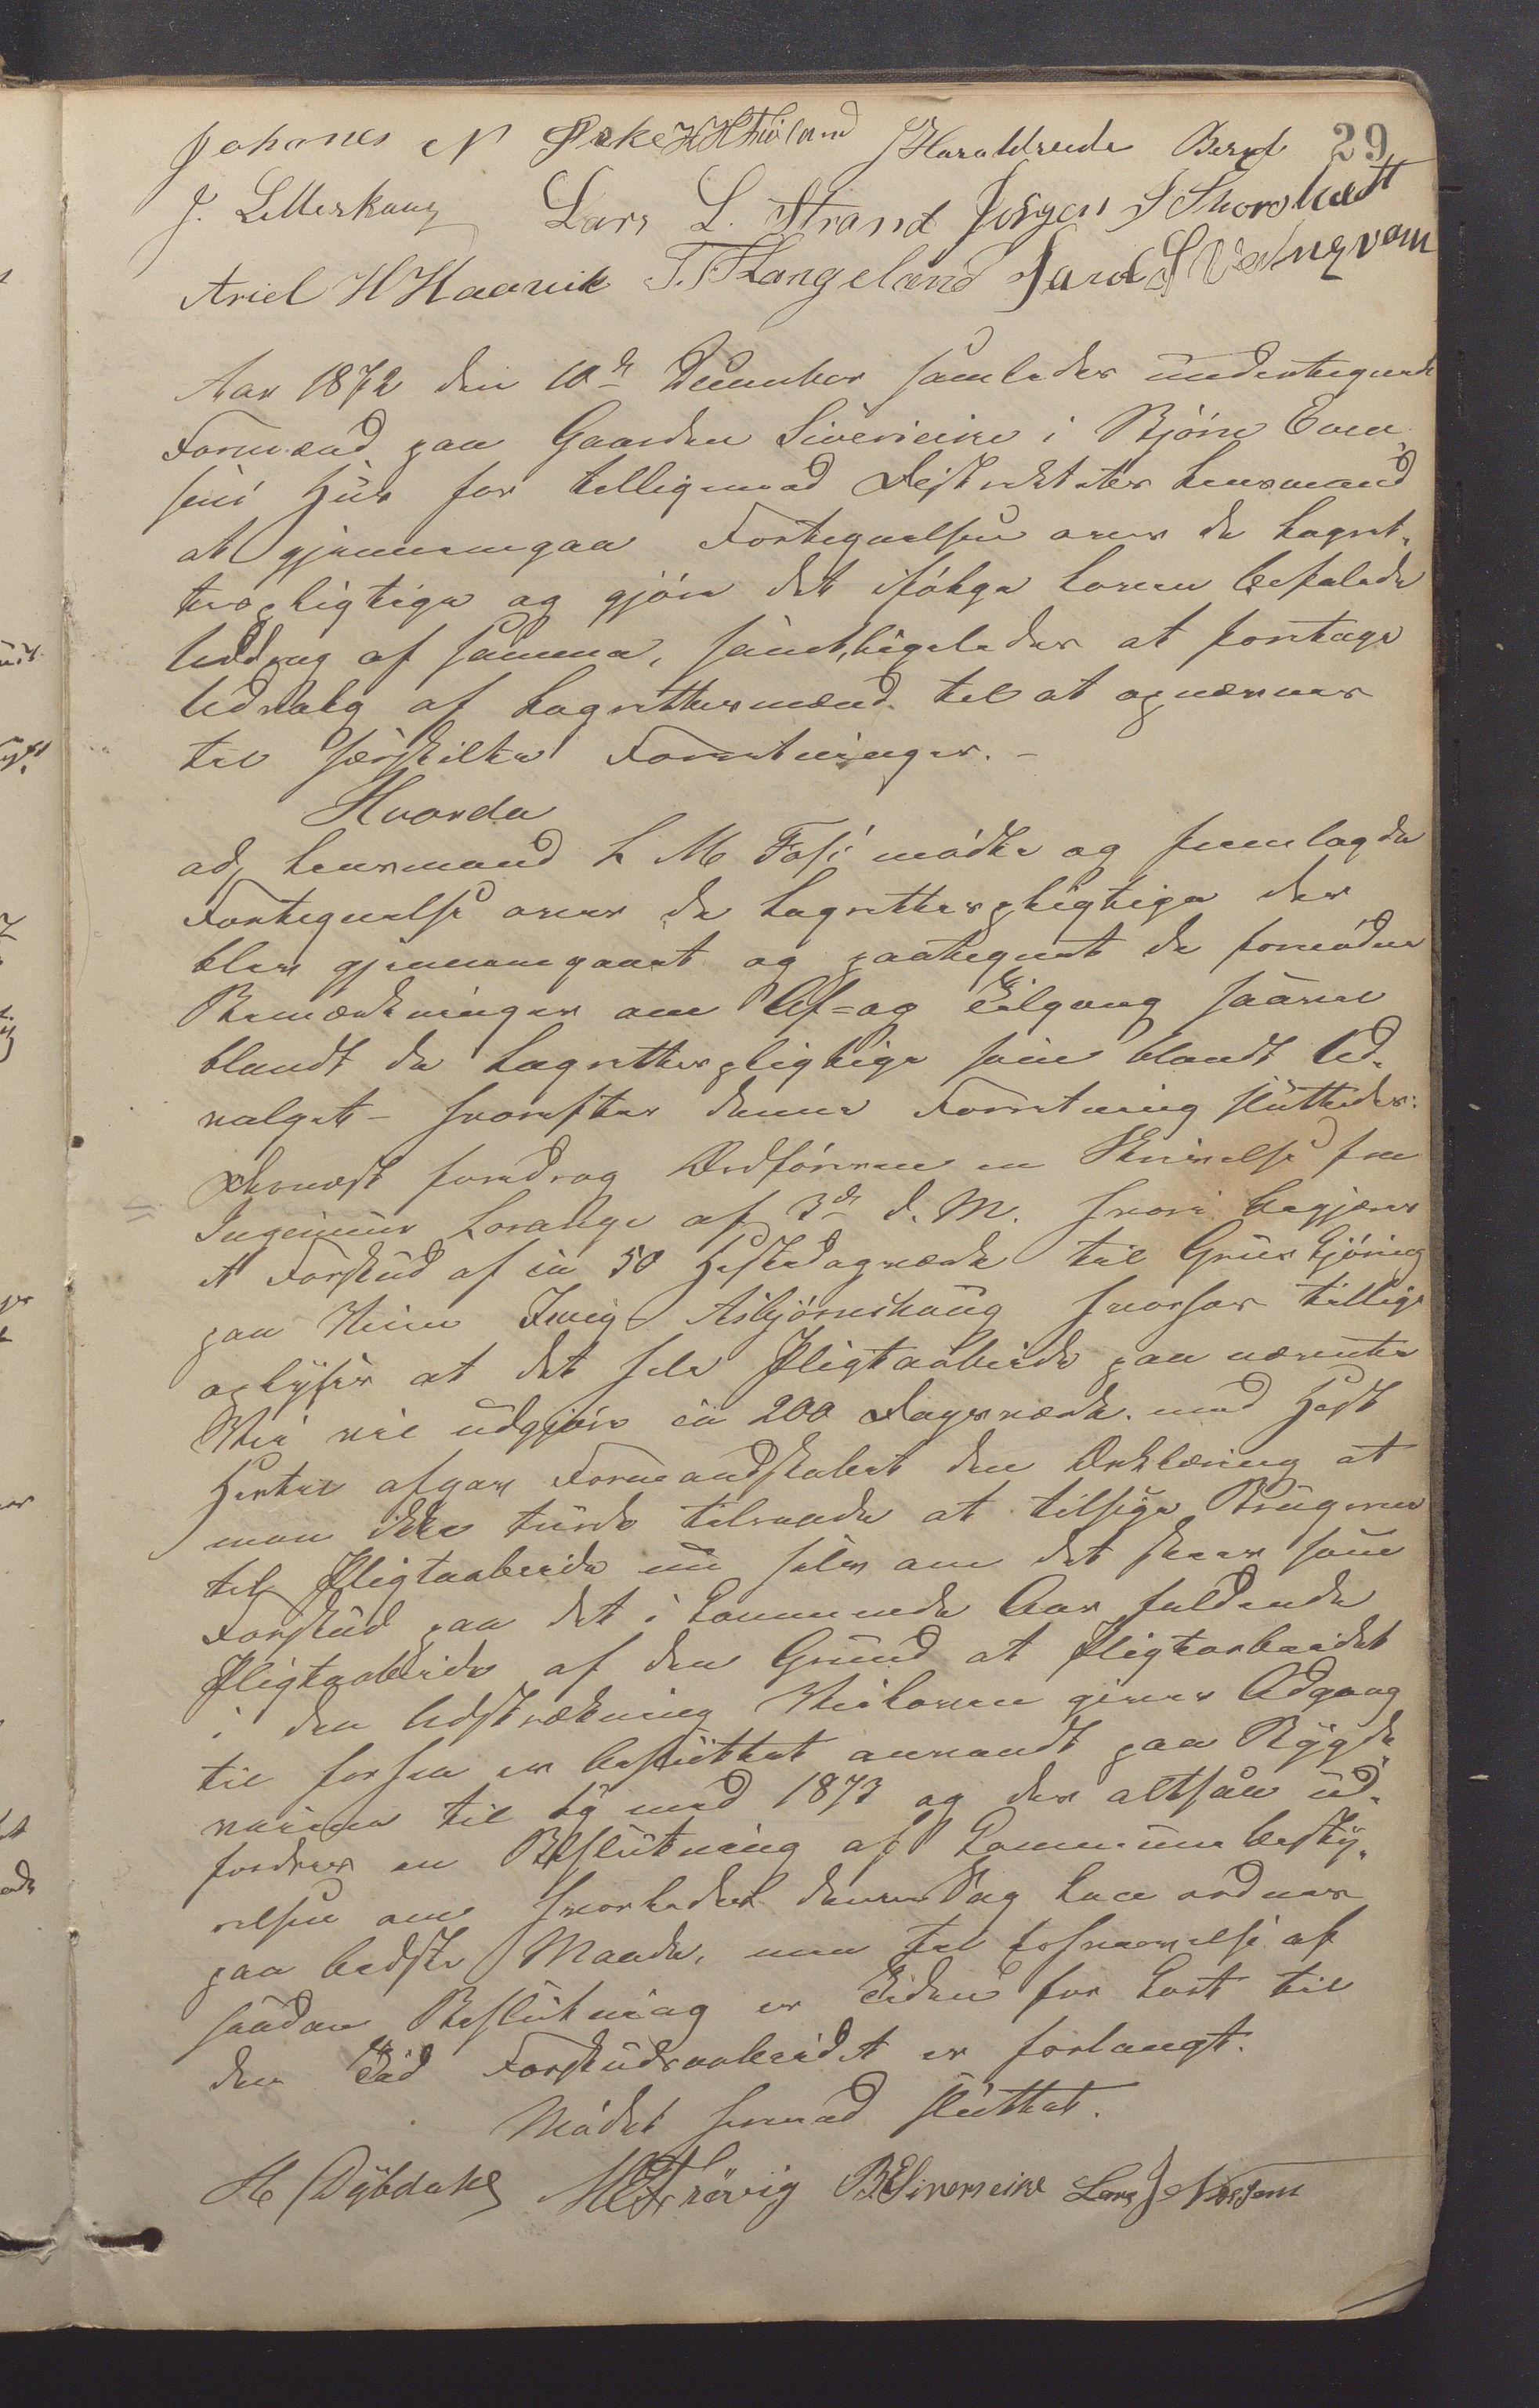 29
Johanes N Ørke HHTvéland J Haraldreide Bernt
J. Lillerhaug Lars L. Strand Jørgen J Thorsheett
Ariel H Haavik T. T. Langeland
Aar 1872 den 10de December samledes undertegnede
Formænd paa Gaarden Sivereine i Bjørn Even-
sens Huus for tilligemed Distriktets Lensmand
at gjennemgaa Fortegnelsen over de Lagret-
tespligtige og gjøre det ifølge Loven befalede
Uddrag af samme, samt ligeledes at foretage
Udvalg af Lagrettesmænd til at opnævnes
til særskilte Forretninger. –
Hvorda
ad, Lensmand L M Fosse mødte og fremlagde
Fortegnelse over de Lagrettespligtige der
blev gjennemgaaet og paategnet de fornødne
Bemærkninger om Af- og Tilgang saavel
blandt de Lagrettespligtige som blandt Ud-
valget – hvorefter denne Forretning sluttedes:
Dernæst foredrog Ordføreren en Skrivelse fra
Ingeniør Lorange af 3de d. M. hvori begjæres
et Forskud af ca 50 Hestedagværk til Gruus kjøring
paa Veien Indvig Asbjørnshaug hvorhos tillige
oplyses at det hele Pligtarbeide paa nævnte
Vei vil udgjøre ca 200 Dagsværk. med Hest
Hertil afgav Formandskabet den Erklæring at
man ikke turde tilraade at tilsige Brugerne
til Pligtarbeide nu selv om det skeer som
Forskud paa det i kommende Aar faldende
Pligtarbeide af den Grund at Pligtarbeidet
i den Udstrækning Veiloven giver Adgang
til forhen er besluttet anvendt paa Bygde-
veiene til og med 1873 og der altsaa ud-
fordres en Beslutning af Kommunebesty-
relsen om hvorledes denne Sag kan ordnes
paa bedste Maade, men til Erhvervelse af
saadan Beslutning er Tiden for kort til
den Tid Forskudsarbeidet er forlangt.
Mødet hermed sluttet.
H Dybdahl M E Frøvig B.E. Sivereine Lars J